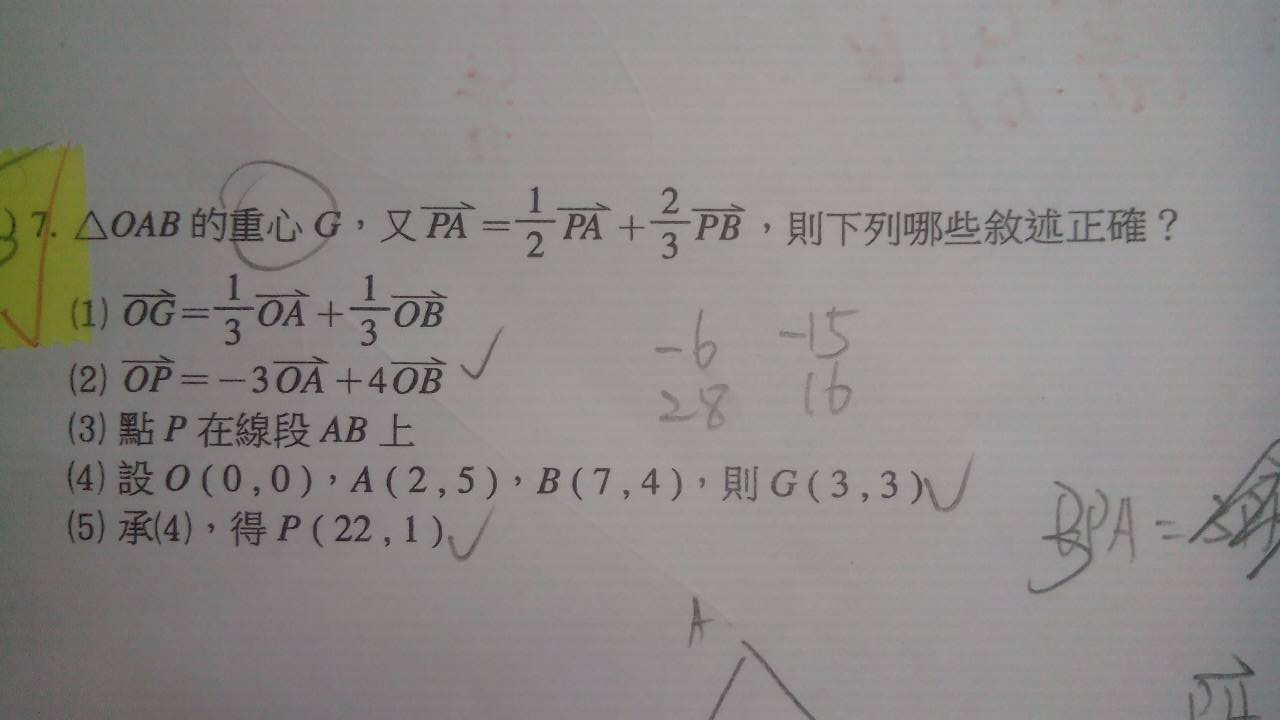 7. △OAB 的重心 G，又 PA = 1/2 PA + 2/3 PB，則下列哪些敘述正確？
(1) OG = 1/3 OA + 1/3 OB
(2) OP = -3OA + 4OB ✓
-6 -15
28 16
(3) 點 P 在線段 AB 上
(4) 設 O ( 0 , 0 )，A ( 2 , 5 )，B ( 7 , 4 )，則 G ( 3 , 3 ) ✓
(5) 承(4)，得 P ( 22 , 1 ) ✓
PA =
A